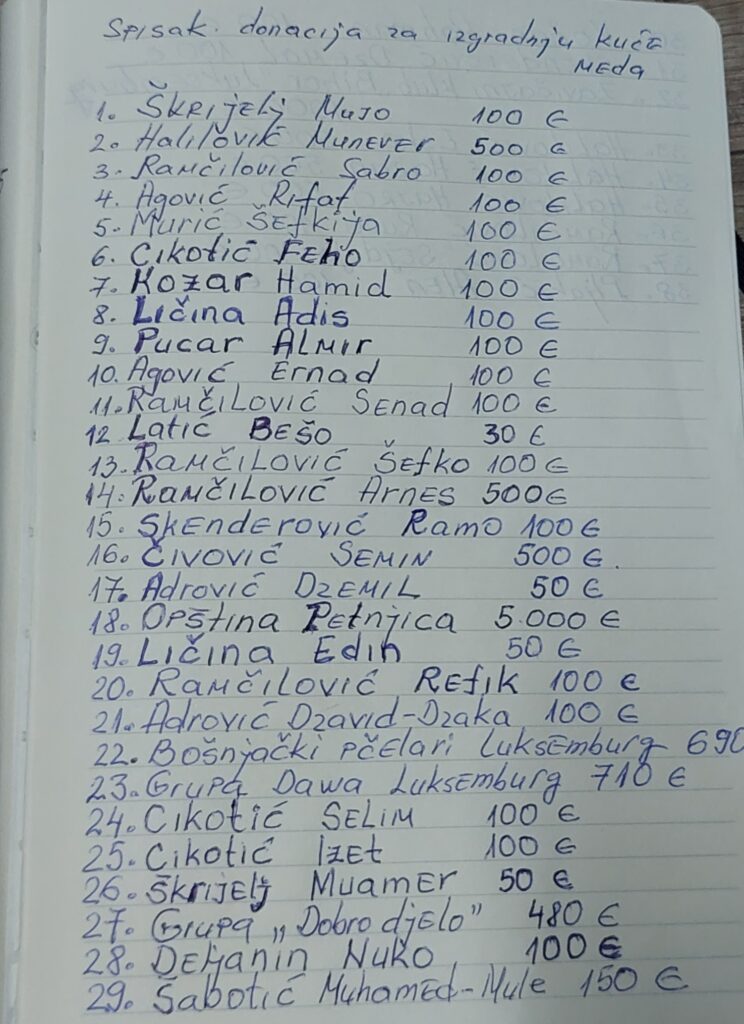 Spisak donacija za izgradnju kuće
meda
1. Škrijelj Mujo 100 €
2. Halilović Munever 500 €
3. Ramčilović Sabro 100 €
4. Agović Rifat 100 €
5. Murić Šefkija 100 €
6. Cikotić Feho 100 €
7. Kozar Hamid 100 €
8. Ličina Adis 100 €
9. Pucar Almir 100 €
10. Agović Ernad 100 €
11. Ramčilović Senad 100 €
12 Latić Bešo 30 €
13. Ramčilović Šefko 100 €
14. Ramčilović Arnes 500 €
15. Skenderović Ramo 100 €
16. Čivović Semin 500 €.
17. Adrović Dzemil 50 €
18. Opština Petnjica 5.000 €
19. Ličina Edin 50 €
20. Ramčilović Refik 100 €
21. Adrović Dzavid-Dzaka 100 €
22. Bošnjački pčelari Luksemburg 690
23. Grupa Dawa Luksemburg 710 €
24. Cikotić Selim 100 €
25. Cikotić Izet 100 €
26. Škrijelj Muamer 50 €
27. Grupa „Dobro djelo" 480 €
28. Dehanin Nuko 100 €
29. Šabotić Muhamed-Mule 150 €